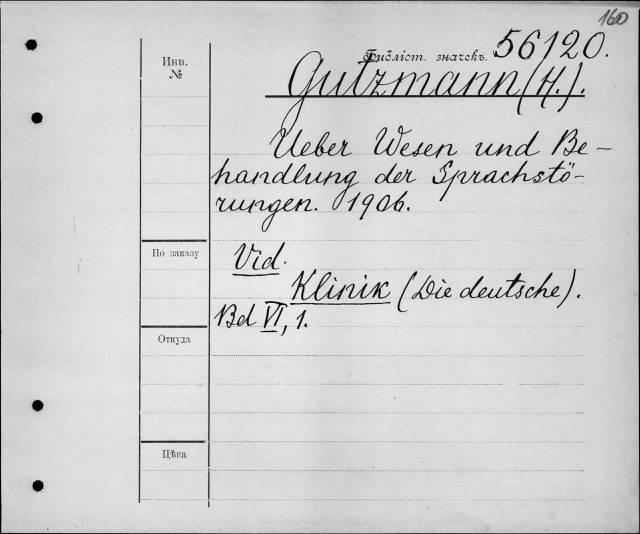 160
Библіот. значекъ. 56120.
Инв.
№
Gutzmann (H.).
Ueber Wesen und Be-
handlung der Sprachstö-
rungen. 1906.
По заказу
Vid.
Klinik (Die deutsche).
Bd VI, 1.
Откуда
Цѣна